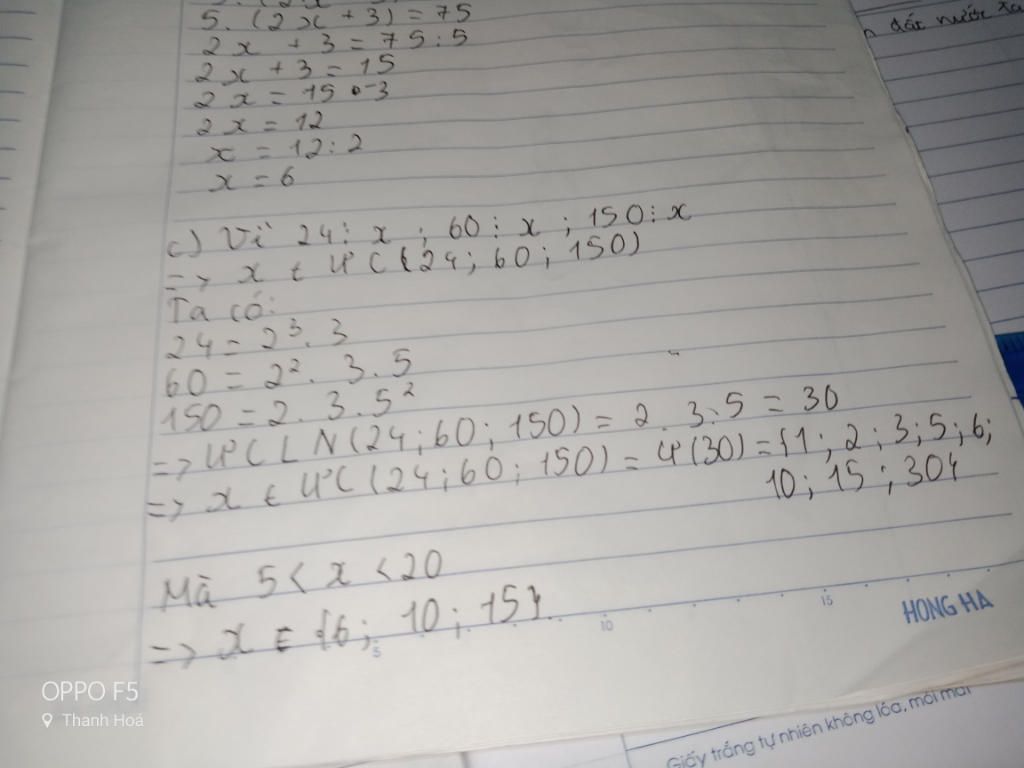 5. (2x + 3) = 75
2x + 3 = 75:5
2x + 3 = 15
2x = 15 - 3
2x = 12
x = 12:2
x = 6
c) Vì 24 ⋮ x ; 60 ⋮ x ; 150 ⋮ x
=> x ∈ ƯC (24; 60; 150)
Ta có:
24 = 2³. 3
60 = 2². 3. 5
150 = 2. 3. 5²
=> ƯCLN (24; 60; 150) = 2. 3. 5 = 30
=> x ∈ ƯC (24; 60; 150) = Ư(30) = {1; 2; 3; 5; 6;
10; 15; 30}
Mà 5 < x < 20
=> x ∈ {6; 10; 15}.
5 10 15
HONG HA
đất nước ta
Giấy trắng tự nhiên không lóa, mỏi mắt
OPPO F5
Thanh Hoá